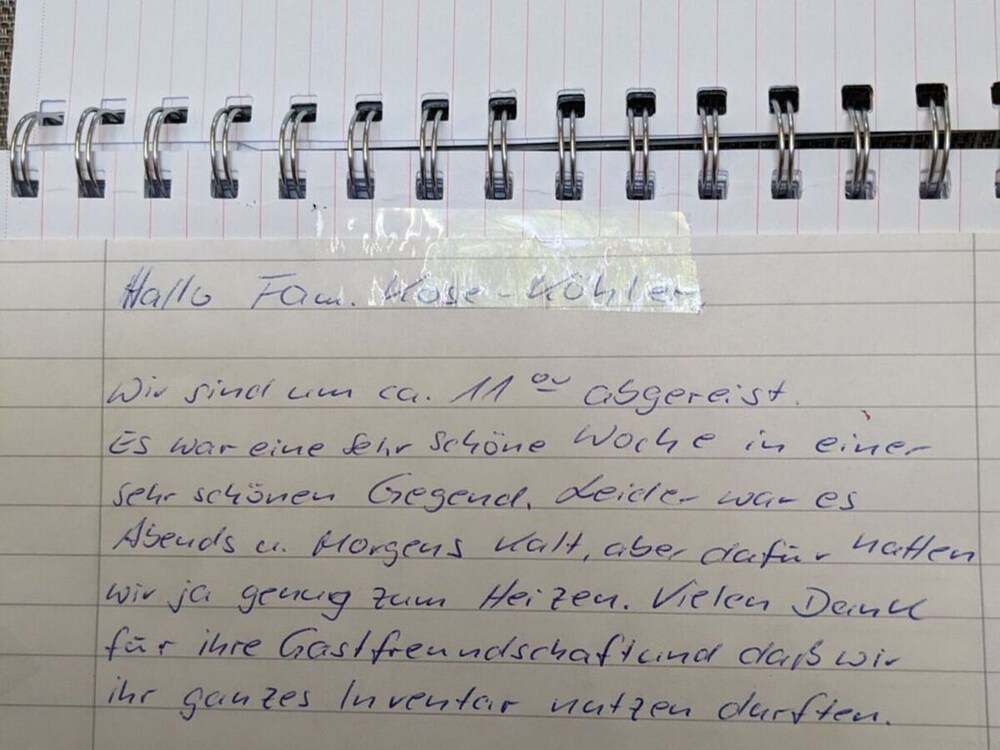 Hallo Fam. Kose-Köhler,
Wir sind um ca. 11 00 abgereist.
Es war eine sehr schöne Woche in einer
sehr schönen Gegend. Leider war es
Abends u. Morgens Kalt, aber dafür hatten
wir ja genug zum Heizen. Vielen Dank
für ihre Gastfreundschaft und daß wir
ihr ganzes Inventar nutzen durften.